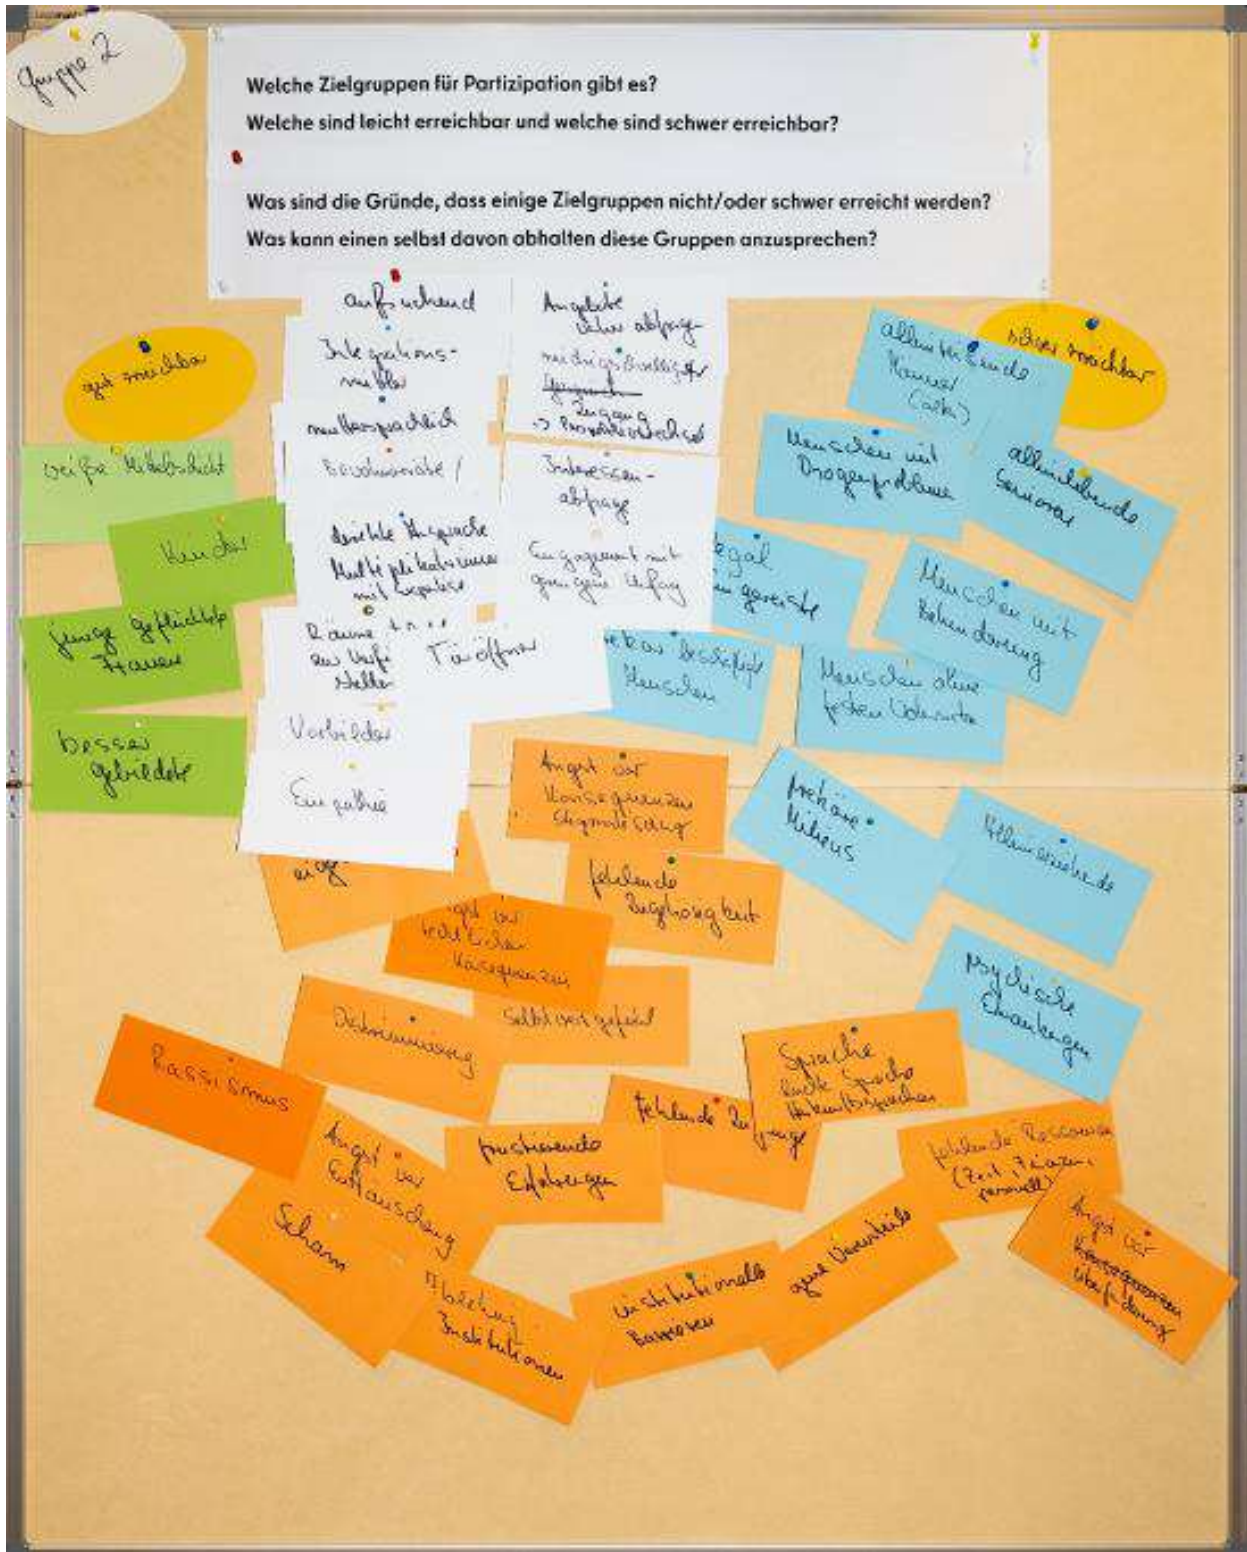 Gruppe 2
Welche Zielgruppen für Partizipation gibt es?
Welche sind leicht erreichbar und welche sind schwer erreichbar?
Was sind die Gründe, dass einige Zielgruppen nicht/oder schwer erreicht werden?
Was kann einen selbst davon abhalten diese Gruppen anzusprechen?
gut erreichbar
weiße Mittelschicht
Kinder
junge geflüchtete
Frauen
besser
gebildete
aufsuchend
Integrations-
muttersprachlich
Bewohnerräte /
direkte Ansprache
Multiplikatorinnen
mit Expertise
Räume
zur Verfü
stellen
Türöffner
Vorbilder
Empathie
Angebote
abfragen
niedrigschwelliger
Zugang
-> Perspektivwechsel
Interessen-
abfrage
Engagement mit
geringem Umfang
schwer erreichbar
Männer
Menschen mit
Drogenprobleme
alleinlebende
Senioren
egal
eingereiste
Menschen mit
Behinderung
beschäftigte
Menschen
Menschen ohne
festen Wohnsitz
prekäre
Milieus
Alleinerziehende
Psychische
Erkrankungen
Angst vor
Konsequenzen
Stigmatisierung
fehlende
Zugehörigkeit
gst vor
rechtlichen
Konsequenzen
Selbstwertgefühl
Diskriminierung
Rassismus
Sprache
leichte Sprache
Herkunftssprachen
fehlende Zugänge
frustrierende
Erfahrungen
Angst vor
Enttäuschung
Scham
fehlende Ressourcen
(Zeit, Finanzen,
personell)
Angst vor
Konsequenzen
Überforderung
eigene Vorurteile
institutionelle
Barrieren
Institutionen